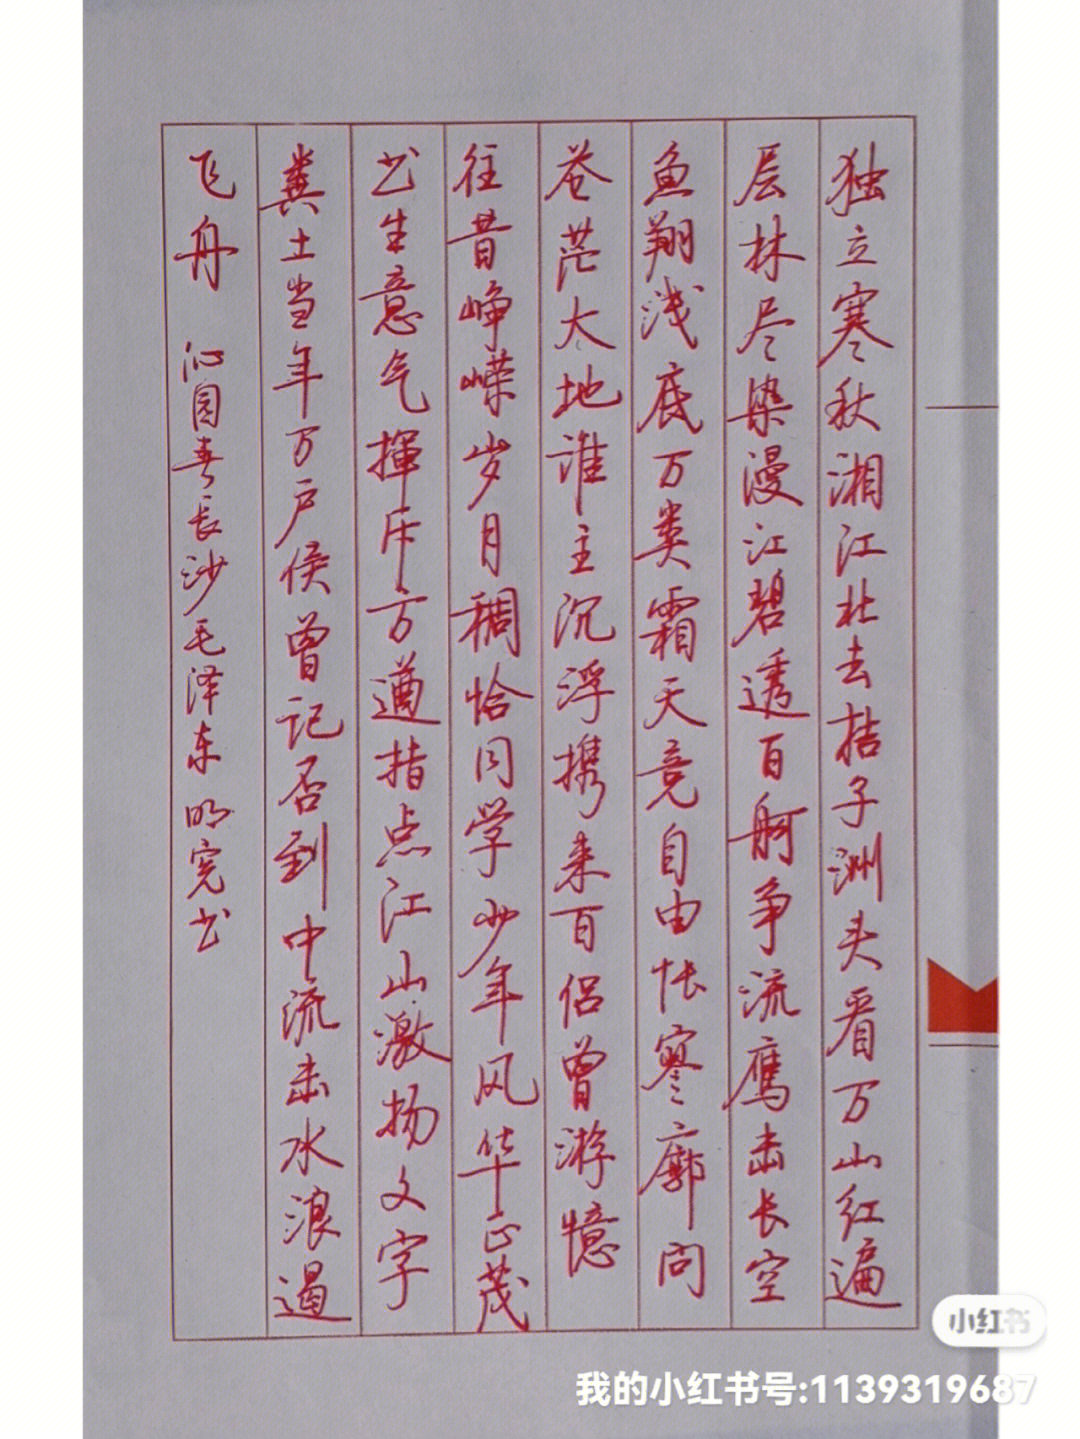 独立寒秋湘江北去桔子洲头看万山红遍
层林尽染漫江碧透百舸争流鹰击长空
鱼翔浅底万类霜天竞自由怅寥廓问
苍茫大地谁主沉浮携来百侣曾游憶
往昔峥嵘岁月稠恰同学少年风华正茂
书生意气揮斥方遒指点江山激扬文字
粪土当年万户侯曾记否到中流击水浪遏
飞舟 沁园春長沙毛泽东明宪书
小红书
我的小红书号:1139319687